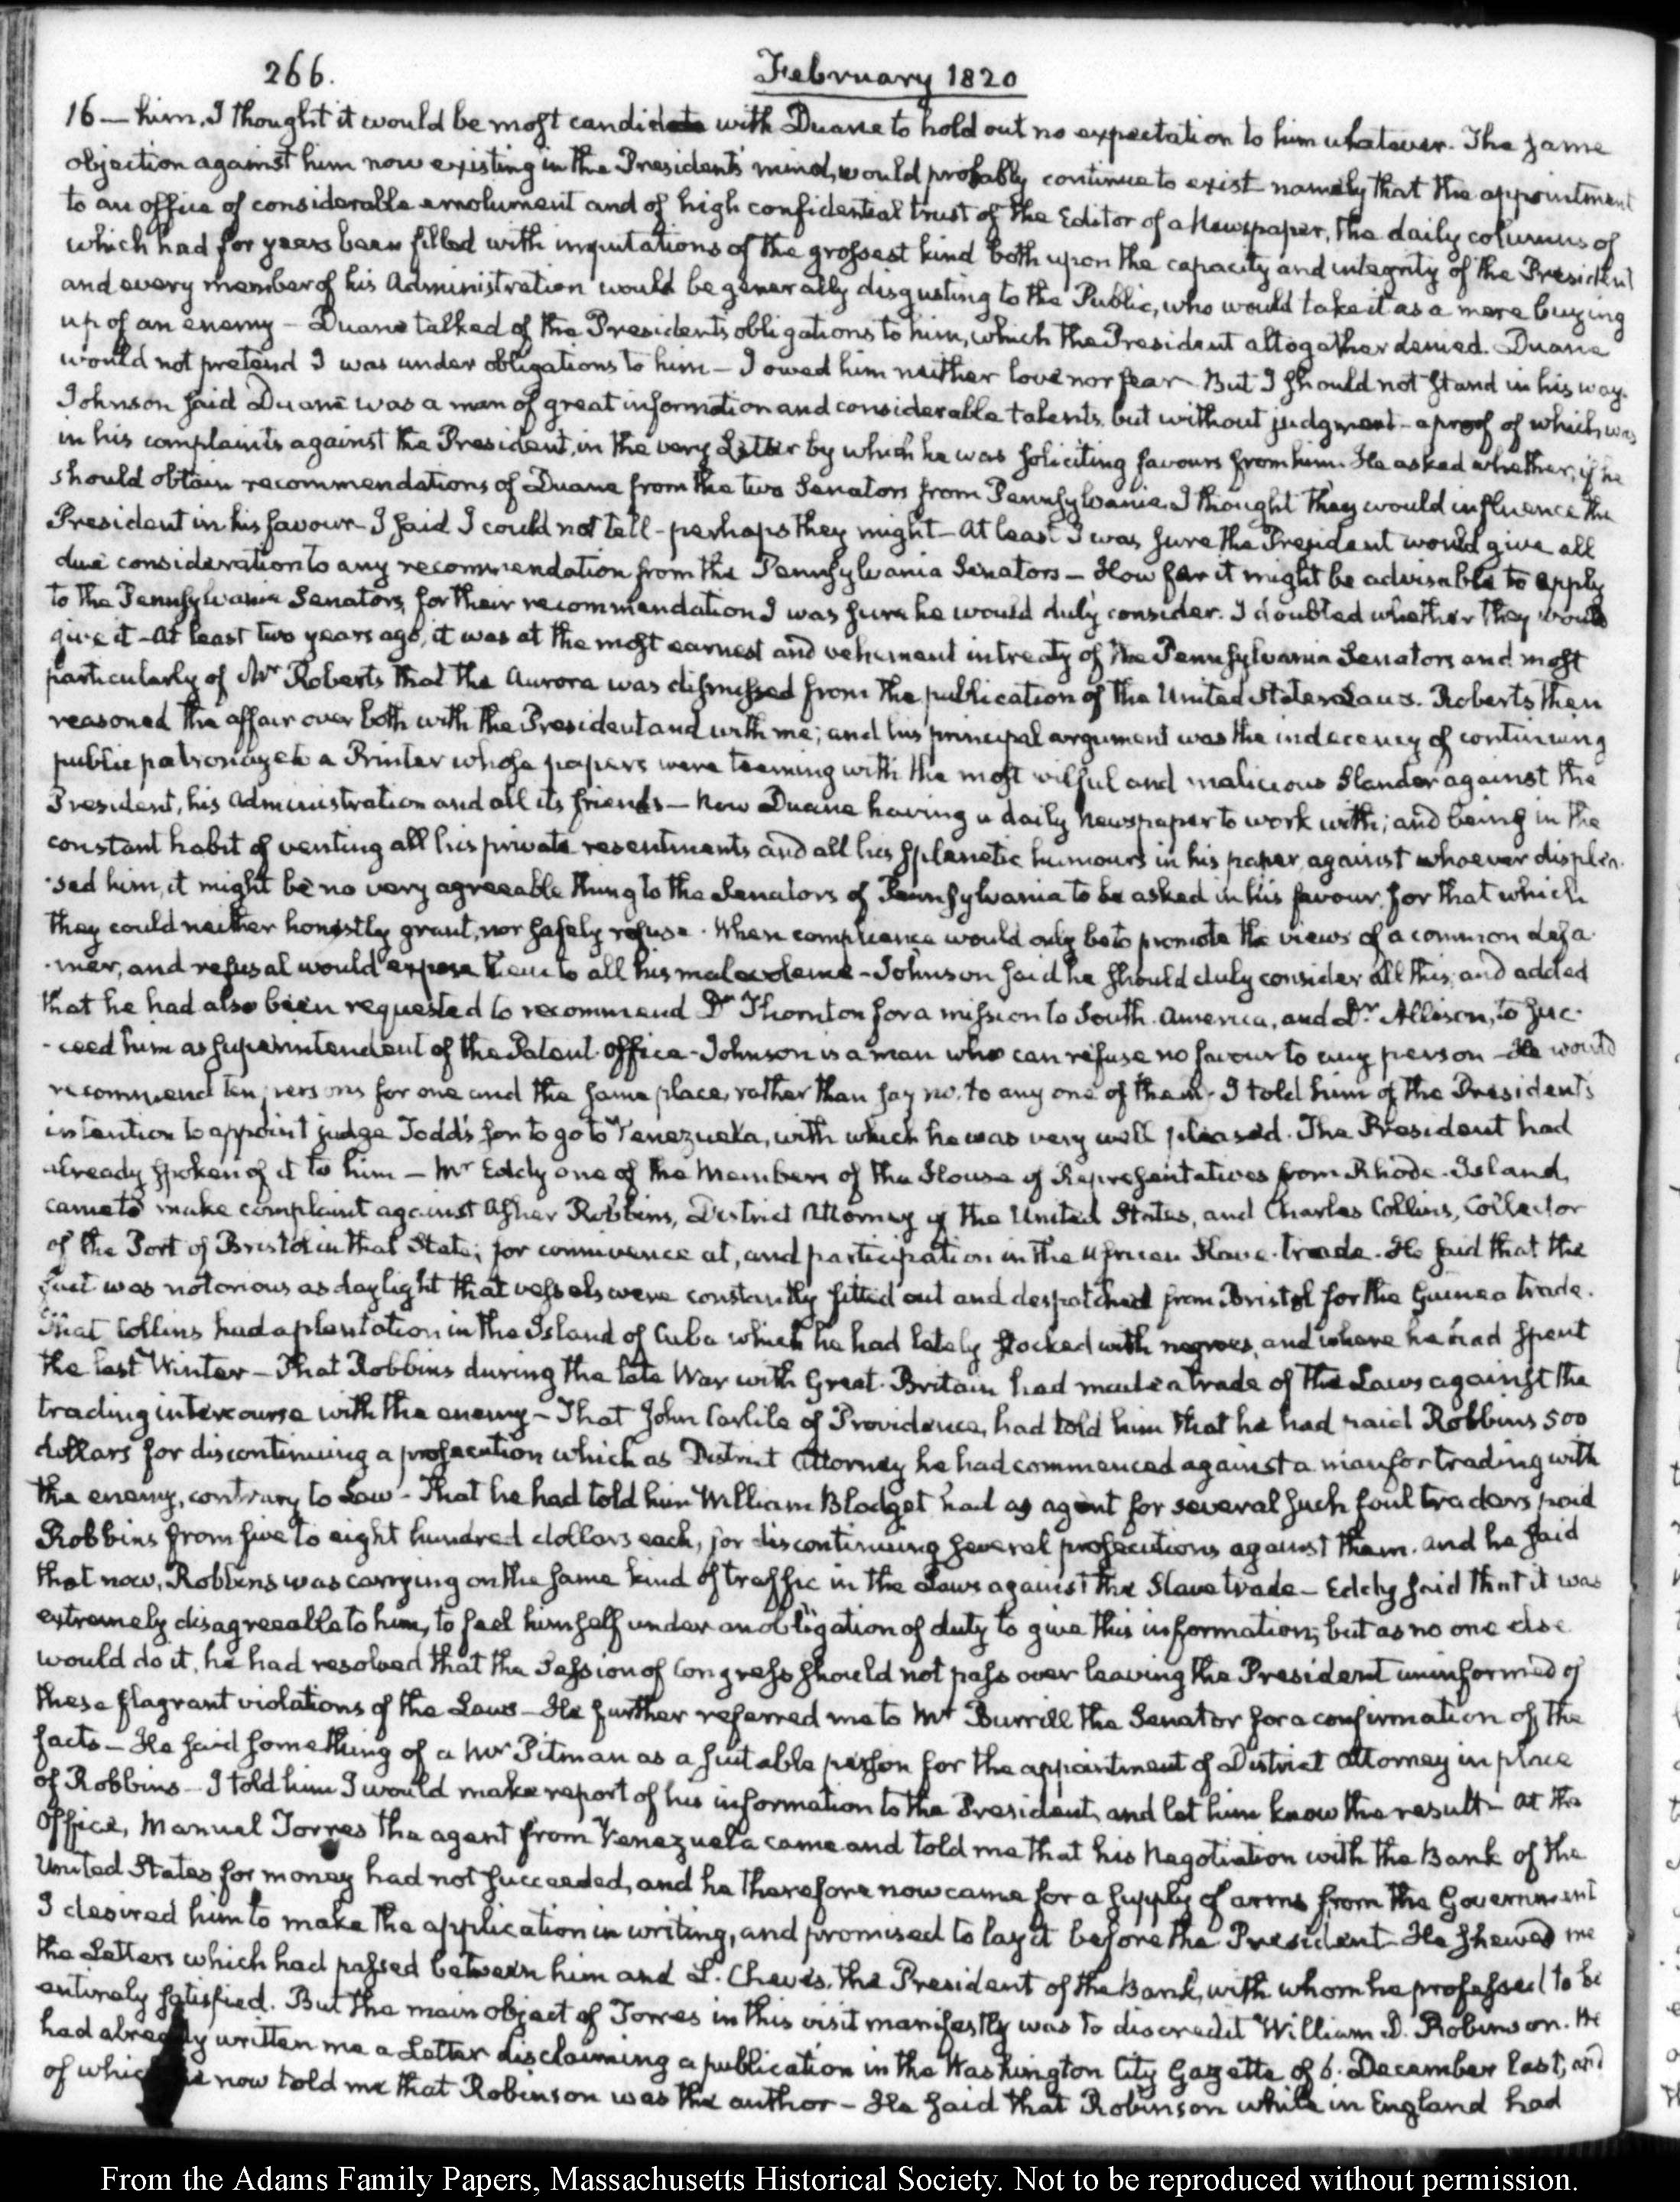 266.
February 1820
16 — him, I thought it would be most candid with Duane to hold out no expectation to him whatever. The same
objection against him now existing in the President's mind, would probably continue to exist namely that the appointment
to an office of considerable emolument and of high confidential trust of the Editor of a Newspaper, the daily columns of
which had for years been filled with imputations of the grossest kind both upon the capacity and integrity of the President
and every member of his Administration would be generally disgusting to the Public, who would take it as a mere buying
up of an enemy — Duane talked of the Presidents obligations to him, which the President altogether denied. Duane
would not pretend I was under obligations to him — I owed him neither love nor fear — But I should not stand in his way.
Johnson said Duane was a man of great information and considerable talents, but without judgment — a proof of which was
in his complaints against the President, in the very Letter by which he was soliciting favours from him. He asked whether, if he
should obtain recommendations of Duane from the two Senators from Pennsylvania I thought they would influence the
President in his favour — I said I could not tell — perhaps they might — At least I was sure the President would give all
due consideration to any recommendation from the Pennsylvania Senators — How far it might be advisable to apply
to the Pennsylvania Senators, for their recommendation I was sure he would duly consider. I doubted whether they would
give it — At least two years ago, it was at the most earnest and vehement intreaty of the Pennsylvania Senators and most
particularly of Mr Roberts that the Aurora was dismissed from the publication of the United States Laws. Roberts then
reasoned the affair over both with the President and with me; and his principal argument was the indecency of continuing
public patronage to a Printer whose papers were teeming with the most wilful and malicious Slander against the
President, his Administration and all its friends — Now Duane having a daily Newspaper to work with; and being in the
constant habit of venting all his private resentments and all his splenetic humours in his paper, against whoever displea-
-sed him, it might be no very agreeable thing to the Senators of Pennsylvania to be asked in his favour, for that which
they could neither honestly grant, nor safely refuse. When compliance would only be to promote the views of a common defa-
-mer, and refusal would expose them to all his malevolence — Johnson said he should duly consider all this; and added
that he had also been requested to recommend Dr Thornton for a mission to South America, and Dr. Allison, to suc-
-ceed him as Superintendent of the Patent Office — Johnson is a man who can refuse no favour to any person — He would
recommend ten persons for one and the same place, rather than say no, to any one of them. I told him of the President's
intention to appoint judge Todd's son to go to Venezuela, with which he was very well pleased. The President had
already spoken of it to him — Mr Eddy one of the Members of the House of Representatives from Rhode-Island,
came to make complaint against Asher Robbins, District Attorney of the United States, and Charles Collins, Collector
of the Port of Bristol in that State; for connivence at, and participation in the African Slave-trade. He said that the
fact was notorious as daylight that vessels were constantly fitted out and despatched from Bristol for the Guinea trade.
That Collins had a plantation in the Island of Cuba which he had lately stocked with negroes, and where he had spent
the last Winter — That Robbins during the late War with Great-Britain had made a trade of the Laws against the
trading intercourse with the enemy — That John Carlile of Providence, had told him that he had paid Robbins 500
dollars for discontinuing a prosecution which as District Attorney he had commenced against a man for trading with
the enemy, contrary to Law — That he had told him William Blodget had as agent for several such foul traders paid
Robbins from five to eight hundred dollars each, for discontinuing several prosecutions against them. And he said
that now, Robbins was carrying on the same kind of traffic in the Laws against the Slave trade — Eddy said that it was
extremely disagreeable to him, to feel himself under an obligation of duty to give this information; but as no one else
would do it, he had resolved that the Session of Congress should not pass over leaving the President uninformed of
these flagrant violations of the Laws — He further referred me to Mr Burrill the Senator for a confirmation of the
facts — He said something of a Mr Pitman as a suitable person for the appointment of District Attorney in place
of Robbins — I told him I would make report of his information to the President, and let him know the result — At the
Office, Manuel Torres the agent from Venezuela came and told me that his Negotiation with the Bank of the
United States for money had not succeeded, and he therefore now came for a supply of arms from the Government
I desired him to make the application in writing, and promised to lay it before the President — He shewed me
the Letters which had passed between him and L. Cheves, the President of the Bank, with whom he professed to be
entirely satisfied. But the main object of Torres in this visit manifestly was to discredit William D. Robinson. He
had already written me a Letter disclaiming a publication in the Washington City Gazette of 6. December last, and
of which he now told me that Robinson was the author — He said that Robinson while in England had
From the Adams Family Papers, Massachusetts Historical Society. Not to be reproduced without permission.